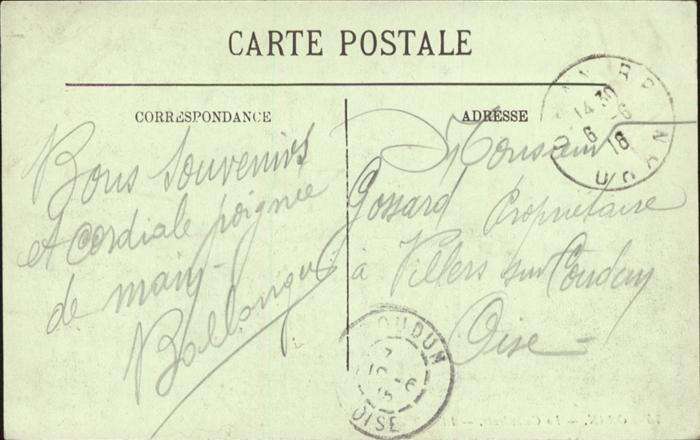 CARTE POSTALE
CORRESPONDANCE
ADRESSE
Bons souvenirs
et cordiale poignée
de main
Ballanger
Monsieur
Gossard Propriétaire
à Villers sur Coudun
Oise
14 30
6
18
COUDUN
7
OISE